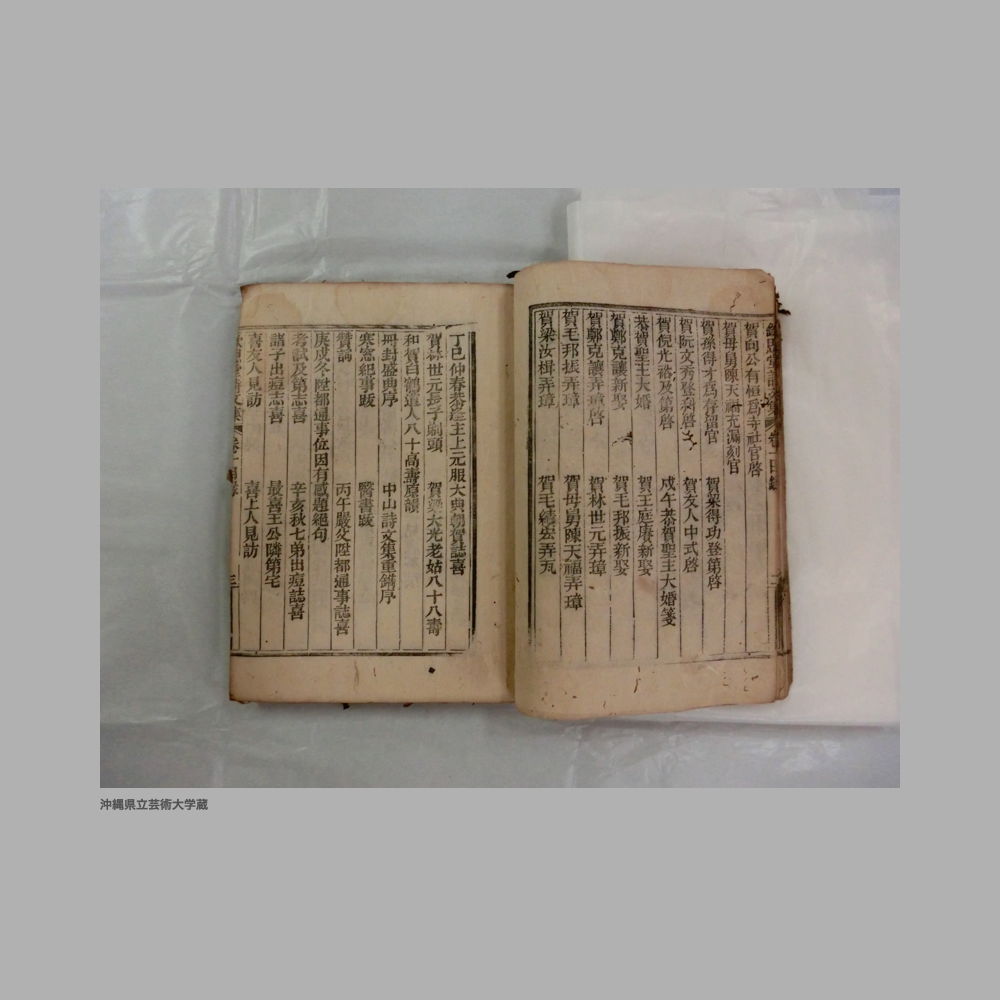 賀向公有恒爲寺社官啓
賀母舅陳天福充漏刻官
賀孫得才爲存留官 賀梁得功登第啓
賀阮文秀登科啓 賀友人中式啓
賀倪光裕及第啓 戊午恭賀聖主大婚箋
恭賀聖主大婚 賀王庭賡新娶
賀鄭克讓新娶 賀毛邦振新娶
賀鄭克讓弄璋啓 賀林世元弄璋
賀毛邦振弄璋 賀母舅陳天福弄璋
賀梁汝楫弄璋 賀毛績宏弄瓦
丁巳仲春恭遇主上元服大典朝賀誌喜
賀林世元長子剃頭 賀梁大光老姑八十八壽
和賀白鶴道人八十高壽原韻
冊封盛典序 中山詩文集重鐫序
寒窓紀事跋 醫書跋
贊論 丙午嚴父陞都通事誌喜
庚戌冬陞都通事位因有感題絕句
考試及第志喜 辛亥秋七弟出痘誌喜
諸子出痘志喜 最喜王公隣第宅
喜友人見訪 喜上人見訪
沖縄県立芸術大学蔵